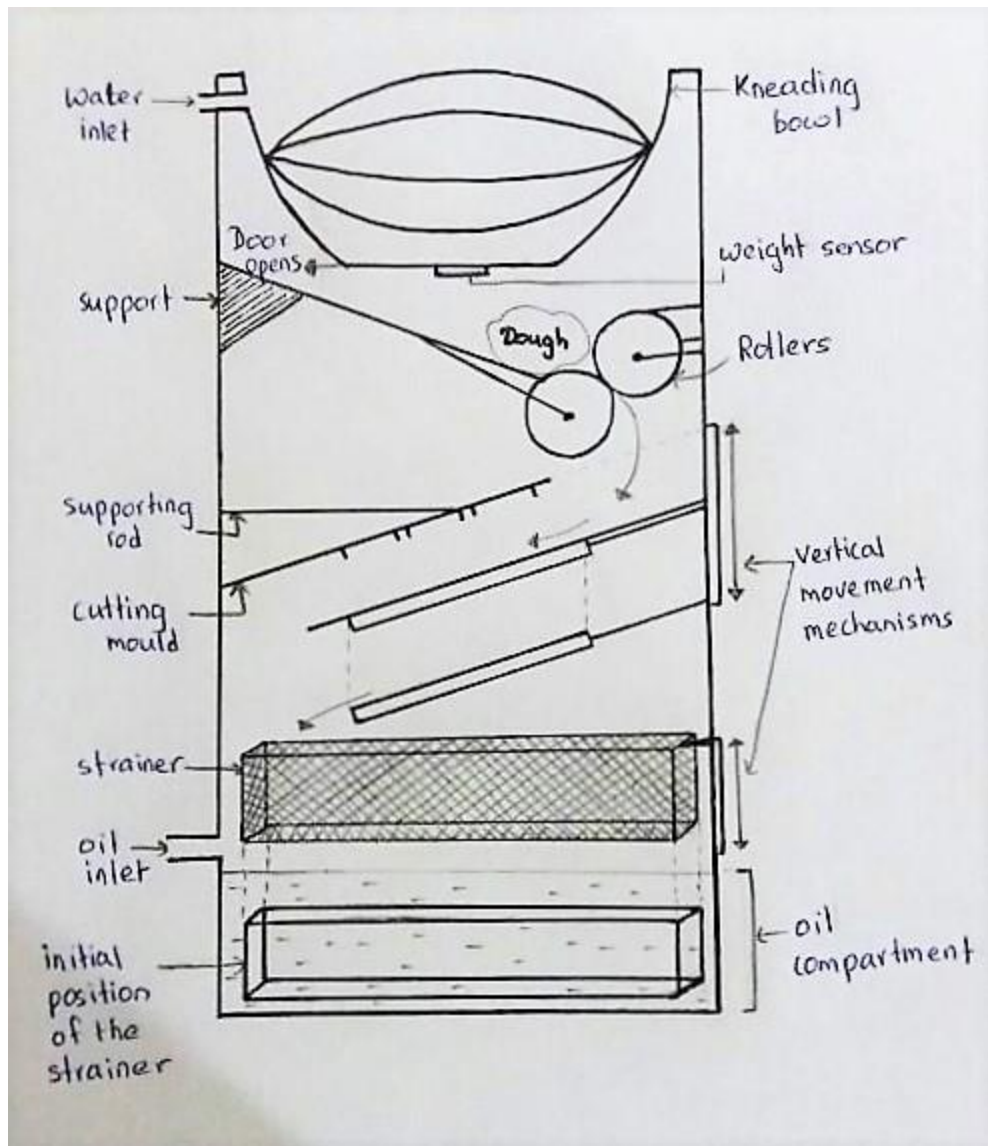 Water
inlet
Kneading
bowl
Door
opens
weight sensor
support
Dough
Rollers
supporting
rod
cutting
mould
vertical
movement
mechanisms
strainer
oil
inlet
oil
compartment
initial
position
of the
strainer